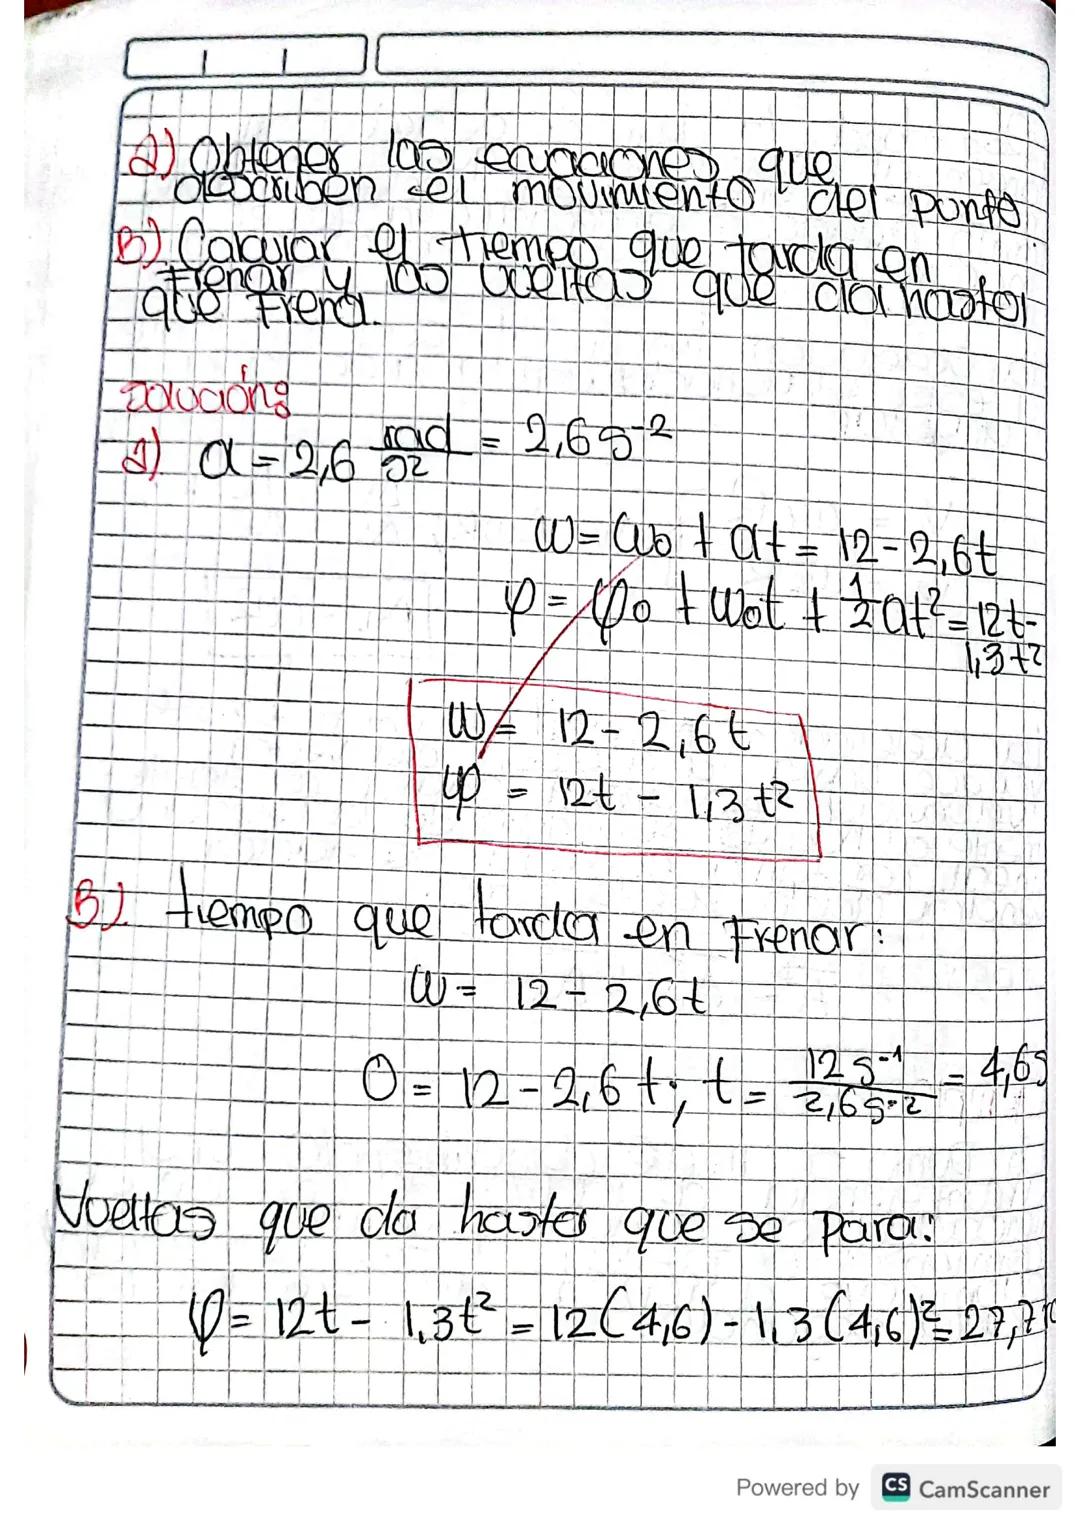 a) Obtener las ecuaciones que
describen el movimiento del punto.
B) Calcular el tiempo que tarda en
frenar y las vueltas que da hasta
que frena.
Solución:
a) α = 2,6 rad/s² = 2,6 s⁻²
ω = ω₀ + αt = 12 - 2,6t
φ = φ₀ + ω₀t + 1/2 αt² = 12t -
1,3t²
ω = 12 - 2,6t
φ = 12t - 1,3t²
B) tiempo que tarda en Frenar:
ω = 12 - 2,6t
0 = 12 - 2,6t; t = 12 s⁻¹ / 2,6 s⁻² = 4,6s
Vueltas que da hasta que se para:
φ = 12t - 1,3t² = 12(4,6) - 1,3(4,6)² = 27,7
Powered by CS CamScanner